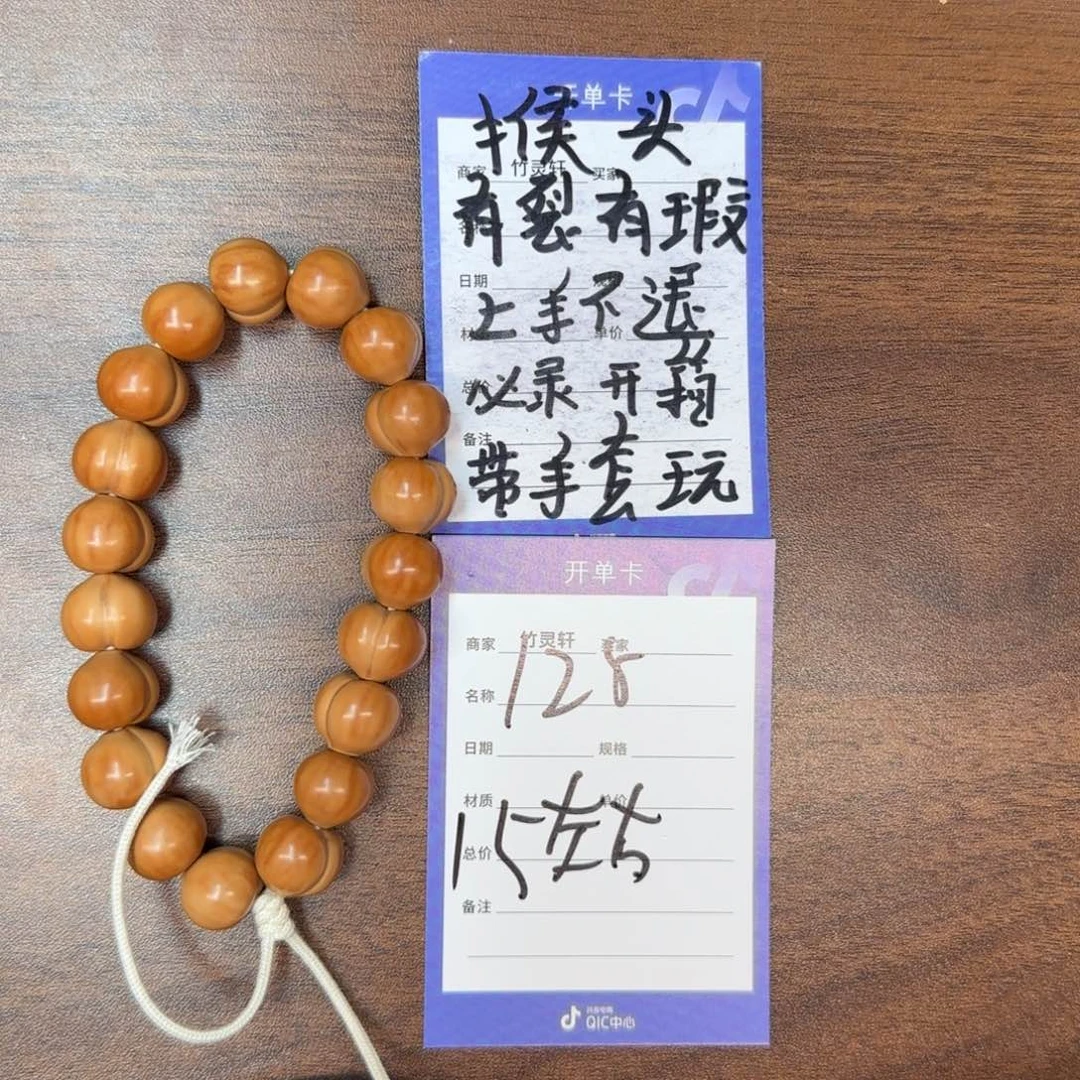 开单卡
猴头
商家 竹灵轩 买家
有裂有瑕
日期
上手不退
单价
必录开箱
备注
带手套玩
开单卡
商家 竹灵轩 买家
128
名称
日期 规格
材质 单价
15左右
总价
备注
抖音电商
QIC中心